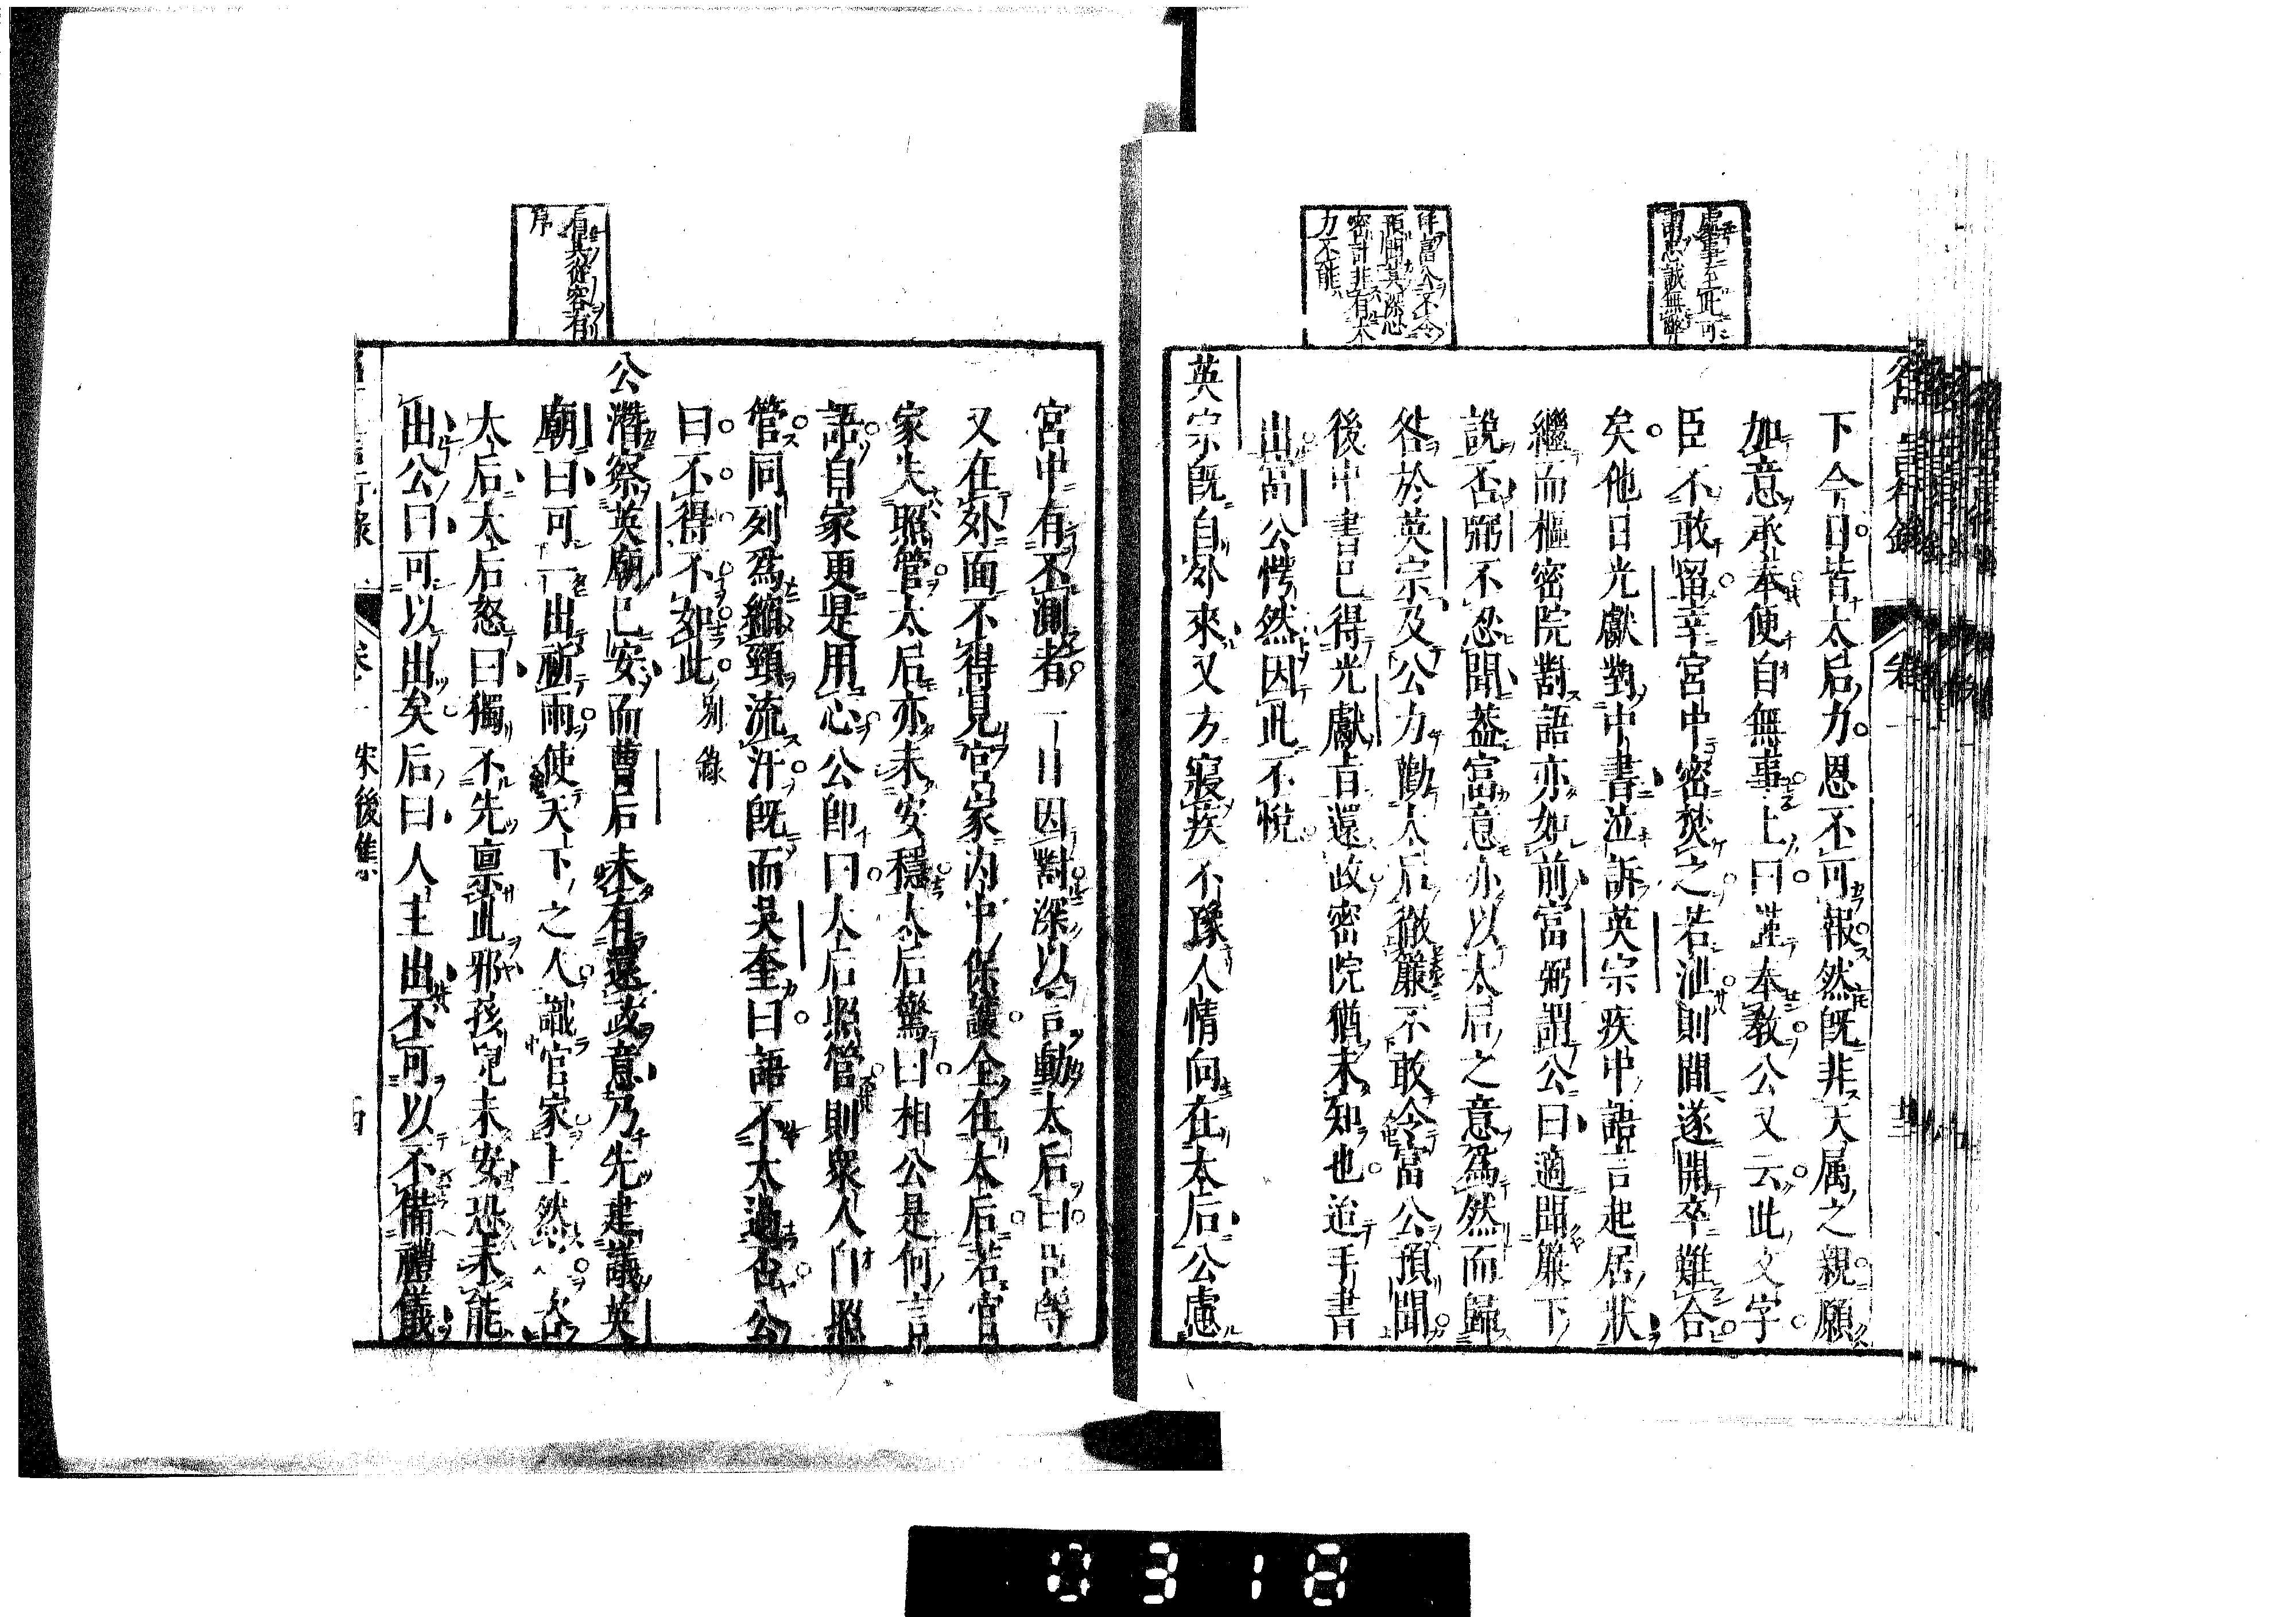 處事至此可
謂忠誠無
下今日皆太后力恩不可報然既非天属之親願
加意承奉使自無事上曰謹奉教公又云此文字
臣不敢留幸宮中密焚之若泄則間遂開卒難合
矣他日光獻對中書泣訴英宗疾中語言起居狀
繼而樞密院對語亦如前富弼謂公曰適聞簾下
說否弼不忍聞蓋富意亦以太后之意爲然而歸
咎於英宗及公力勸太后徹簾不敢令富公預聞
後中書已得光獻旨還政密院猶未知也迨手書
出富公愕然因此不悅
英宗既自外來又方寢疾不豫人情向在太后公慮
富公不令
預聞其深思
密計非有大
力不能
宮中有不測者一日因對深以言動太后曰臣等
又在外面不得見官家内中保護全在太后若官
家失照管太后亦未安穩太后驚曰相公是何言
語自家更是用心公即曰太后照管則衆人自照
管同列爲縮頸流汗既而吳奎曰語不太過否公
曰不得不如此 別錄
公潛察英廟已安而曹后未有還政意乃先建議英
廟曰可一出祈雨使天下之人識官家上然之咨
太后太后怒曰獨不先禀此邪孩兒未安恐未能
出公曰可以出矣后曰人主出不可以不備禮儀
看其從容有
序
言行錄 卷十一 宋後集
0318